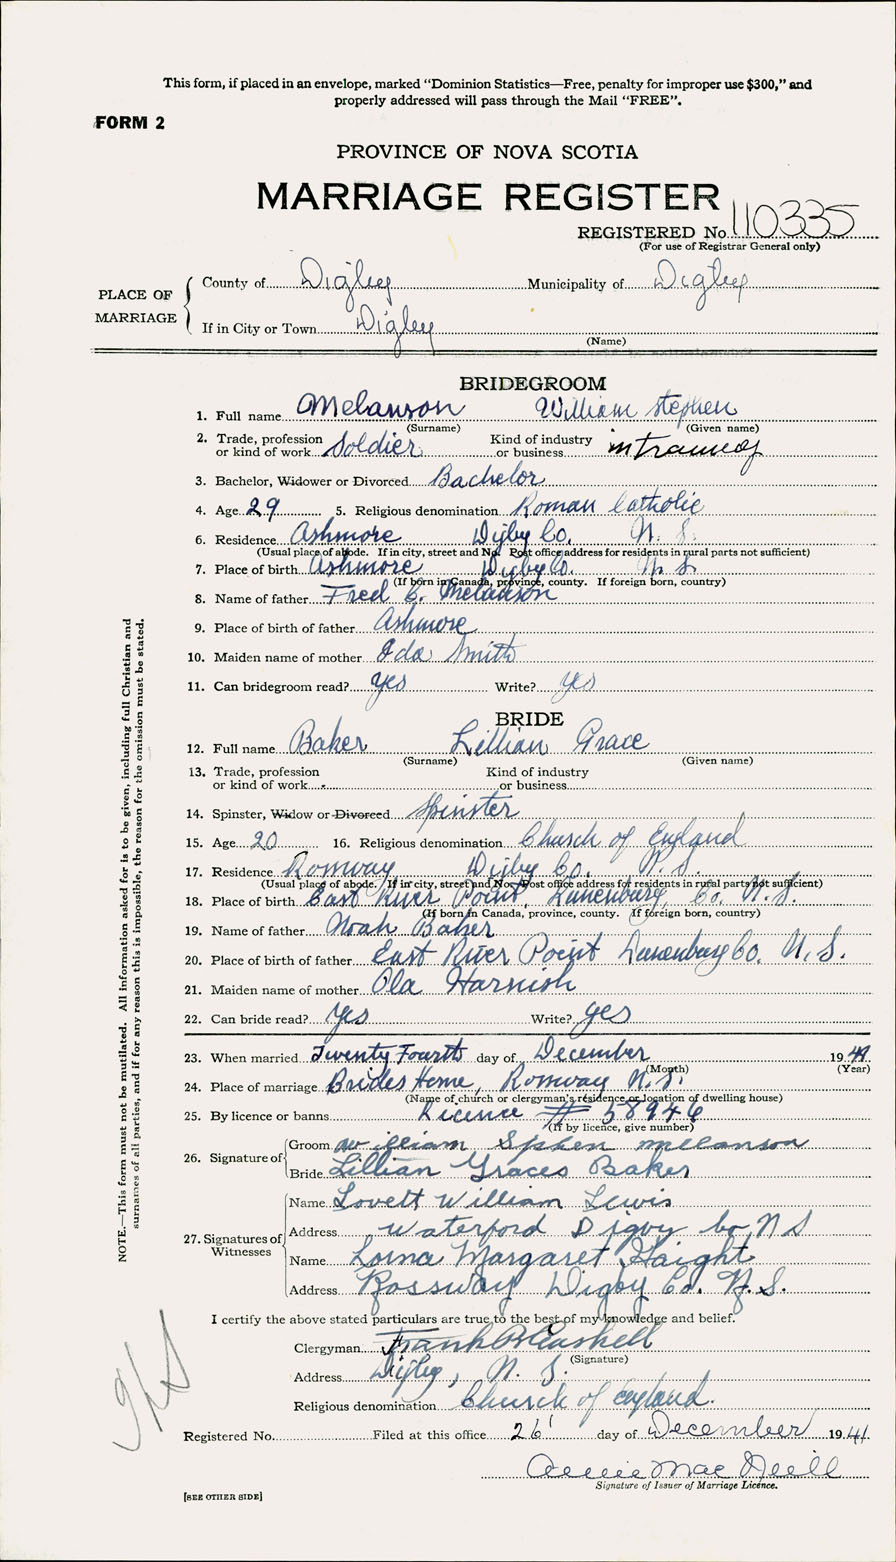 This form, if placed in an envelope, marked “Dominion Statistics—Free, penalty for improper use $300,” and
properly addressed will pass through the Mail “FREE”.
FORM 2
PROVINCE OF NOVA SCOTIA
MARRIAGE REGISTER
REGISTERED No. 110335
(For use of Registrar General only)
PLACE OF MARRIAGE
County of Digby Municipality of Digby
If in City or Town Digby
(Name)
BRIDEGROOM
1. Full name Melanson William Stephen
(Surname) (Given name)
2. Trade, profession or kind of work Soldier Kind of industry or business
3. Bachelor, Widower or Divorced Bachelor
4. Age 29 5. Religious denomination Roman Catholic
6. Residence Ashmore Digby Co. N. S.
(Usual place of abode. If in city, street and No. Post office address for residents in rural parts not sufficient)
7. Place of birth Ashmore Digby Co. N. S.
(If born in Canada, province, county. If foreign born, country)
8. Name of father Fred C. Melanson
9. Place of birth of father Ashmore
10. Maiden name of mother Ida Smith
11. Can bridegroom read? yes Write? yes
BRIDE
12. Full name Baker Lillian Grace
(Surname) (Given name)
13. Trade, profession or kind of work Kind of industry or business
14. Spinster, Widow or Divorced Spinster
15. Age 20 16. Religious denomination Church of England
17. Residence Romway Digby Co. N. S.
(Usual place of abode. If in city, street and No. Post office address for residents in rural parts not sufficient)
18. Place of birth East River Point, Lunenburg, Co. N. S.
(If born in Canada, province, county. If foreign born, country)
19. Name of father Noah Baker
20. Place of birth of father East River Point Lunenburg Co. N. S.
21. Maiden name of mother Ola Harnish
22. Can bride read? Yes Write? yes
23. When married Twenty Fourth day of December 1941
(Month) (Year)
24. Place of marriage Brides Home, Romway N. S.
(Name of church or clergyman's residence or location of dwelling house)
25. By licence or banns Licence # 58946
(If by licence, give number)
26. Signature of
Groom William Sphen mellanson
Bride Lillian Graces Baker
27. Signatures of Witnesses
Name Lovett William Lewis
Address Waterford Digby Co N S
Name Lorna Margaret Haight
Address Rossway Digby Co. N. S.
I certify the above stated particulars are true to the best of my knowledge and belief.
Clergyman Frank B Gaskell
(Signature)
Address Digby, N. S.
Religious denomination Church of England.
Registered No. Filed at this office 26 day of December 1941
Annie Mac Neill
Signature of Issuer of Marriage Licence.
[SEE OTHER SIDE]
NOTE.—This form must not be mutilated. All information asked for is to be given, including full Christian and
surnames of all parties, and if for any reason this is impossible, the reason for the omission must be stated.